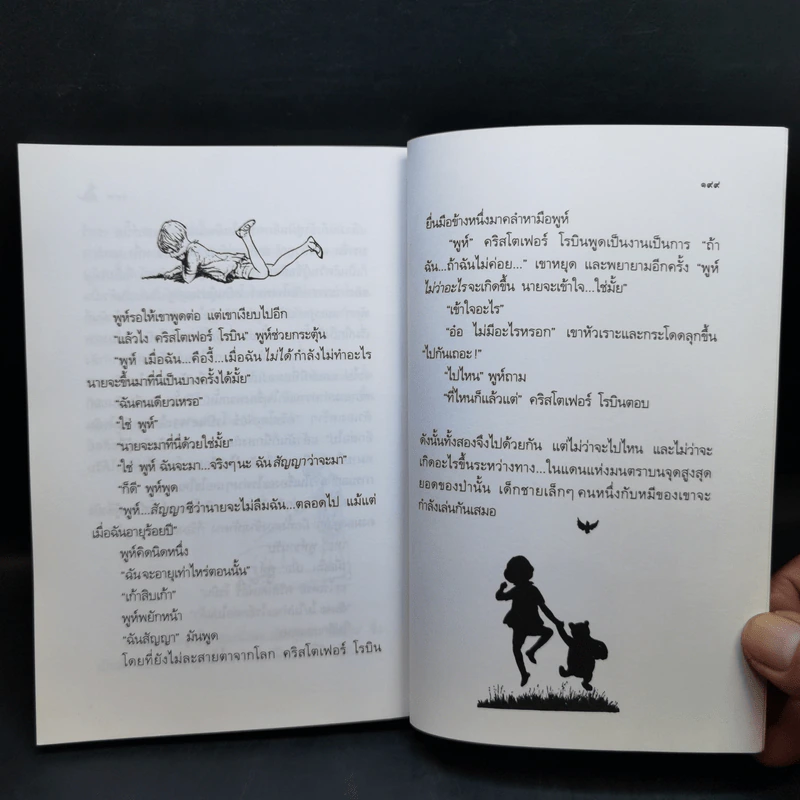 พูห์รอให้เขาพูดต่อ แต่เขาเงียบไปอีก
"แล้วไง คริสโตเฟอร์ โรบิน" พูห์ช่วยกระตุ้น
"พูห์ เมื่อฉัน...คืองี้...เมื่อฉันไม่ได้กำลังไม่ทำอะไร
นายจะขึ้นมาที่นี่เป็นบางครั้งได้มั้ย"
"ฉันคนเดียวเหรอ"
"ใช่ พูห์"
"นายจะมาที่นี่ด้วยใช่มั้ย"
"ใช่ พูห์ ฉันจะมา...จริงๆ นะ ฉันสัญญาว่าจะมา"
"ก็ดี" พูห์พูด
"พูห์...สัญญาซิว่านายจะไม่ลืมฉัน...ตลอดไป แม้แต่
เมื่อฉันอายุร้อยปี"
พูห์คิดนิดหนึ่ง
"ฉันจะอายุเท่าไหร่ตอนนั้น"
"เก้าสิบเก้า"
พูห์พยักหน้า
"ฉันสัญญา" มันพูด
โดยที่ยังไม่ละสายตาจากโลก คริสโตเฟอร์ โรบิน
๑๙๙
ยื่นมือข้างหนึ่งมาคลำหามือพูห์
"พูห์" คริสโตเฟอร์ โรบินพูดเป็นงานเป็นการ "ถ้า
ฉัน...ถ้าฉันไม่ค่อย..." เขาหยุด และพยายามอีกครั้ง "พูห์
ไม่ว่าอะไรจะเกิดขึ้น นายจะเข้าใจ...ใช่มั้ย"
"เข้าใจอะไร"
"อ๋อ ไม่มีอะไรหรอก" เขาหัวเราะและกระโดดลุกขึ้น
"ไปกันเถอะ!"
"ไปไหน" พูห์ถาม
"ที่ไหนก็แล้วแต่" คริสโตเฟอร์ โรบินตอบ
ดังนั้นทั้งสองจึงไปด้วยกัน แต่ไม่ว่าจะไปไหน และไม่ว่าจะ
เกิดอะไรขึ้นระหว่างทาง...ในแดนแห่งมนตราบนจุดสูงสุด
ยอดของป่านั้น เด็กชายเล็กๆ คนหนึ่งกับหมีของเขาจะ
กำลังเล่นกันเสมอ